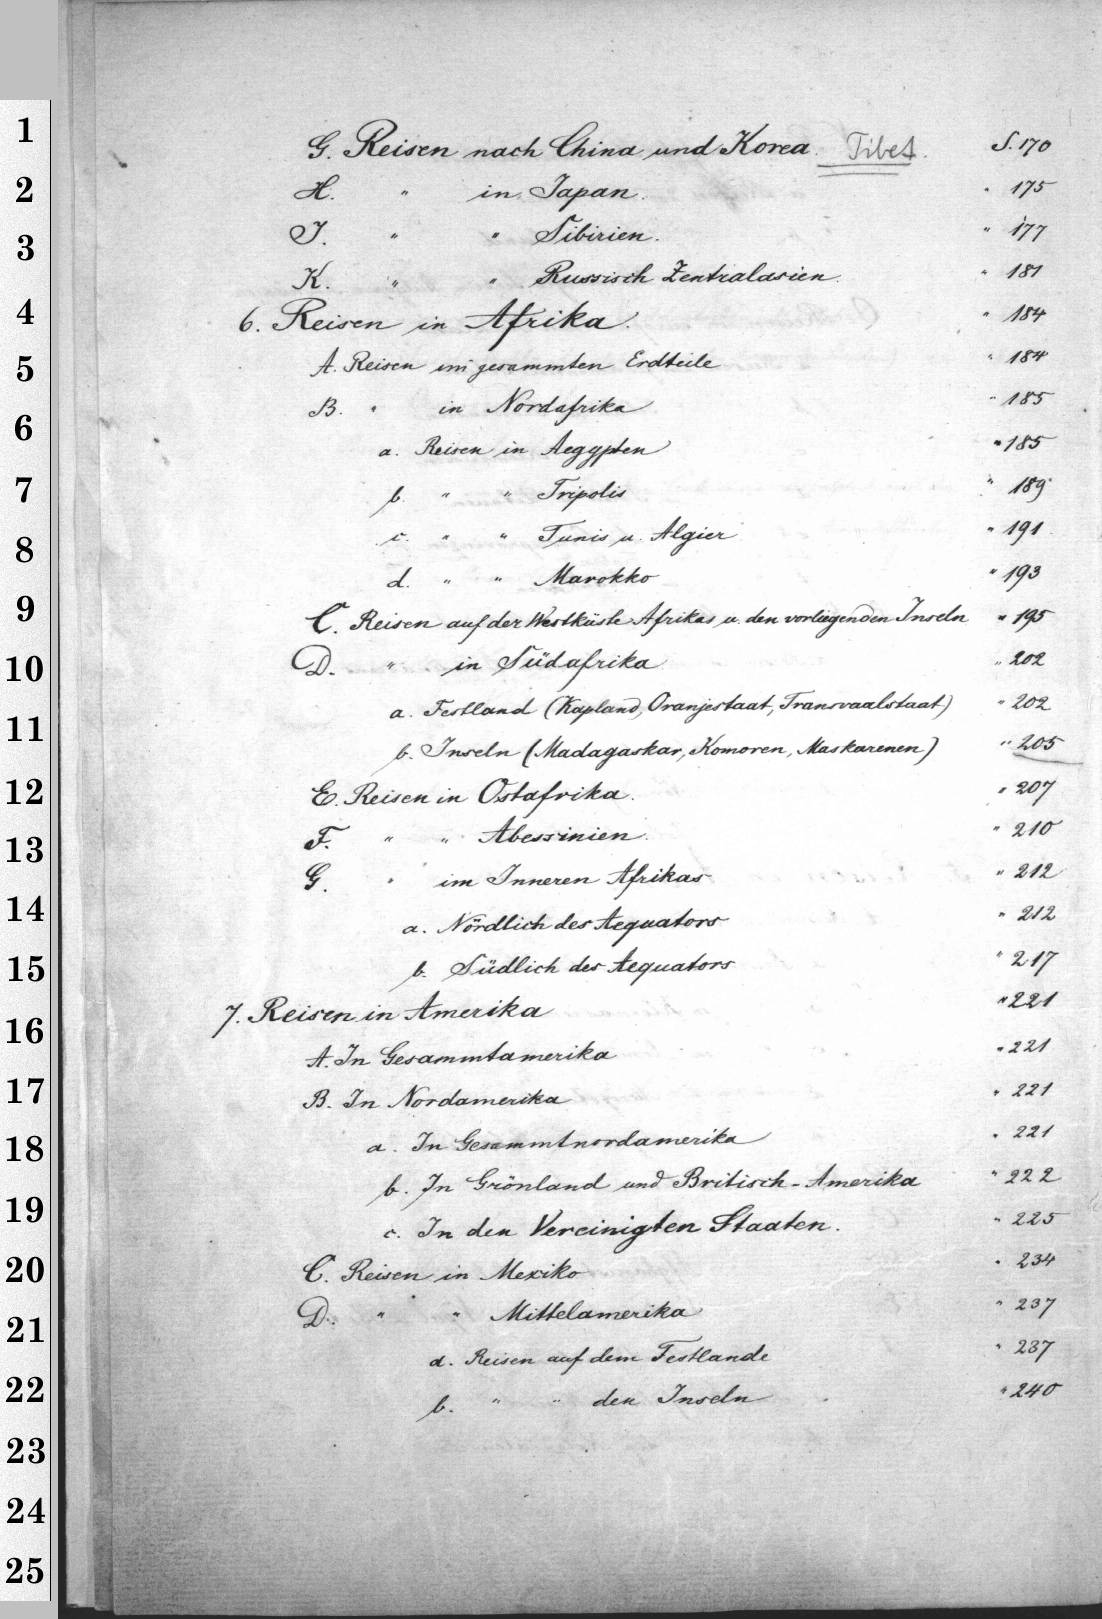 1
2
3
4
5
6
7
8
9
10
11
12
13
14
15
16
17
18
19
20
21
22
23
24
25
G. Reisen nach China und Korea. Tibet. S. 170
H. " in Japan. " 175
I. " " Sibirien. " 177
K. " " Russisch Zentralasien. " 181
6. Reisen in Afrika. " 184
A. Reisen im gesammten Erdteile " 184
B. " in Nordafrika " 185
a. Reisen in Aegypten " 185
b. " " Tripolis " 189
c. " " Tunis u. Algier " 191
d. " " Marokko " 193
C. Reisen auf der Westküste Afrikas u. den vorliegenden Inseln " 195
D. " in Südafrika " 202
a. Festland (Kapland, Oranjestaat, Transvaalstaat) " 202
b. Inseln (Madagaskar, Komoren, Maskarenen) " 205
E. Reisen in Ostafrika. " 207
F. " " Abessinien. " 210
G. " im Inneren Afrikas " 212
a. Nördlich des Aequators " 212
b. Südlich des Aequators " 217
7. Reisen in Amerika " 221
A. In Gesammtamerika " 221
B. In Nordamerika " 221
a. In Gesammtnordamerika " 221
b. In Grönland und Britisch-Amerika " 222
c. In den Vereinigten Staaten. " 225
C. Reisen in Mexiko " 234
D. " " Mittelamerika " 237
a. Reisen auf dem Festlande " 237
b. " " den Inseln " 240